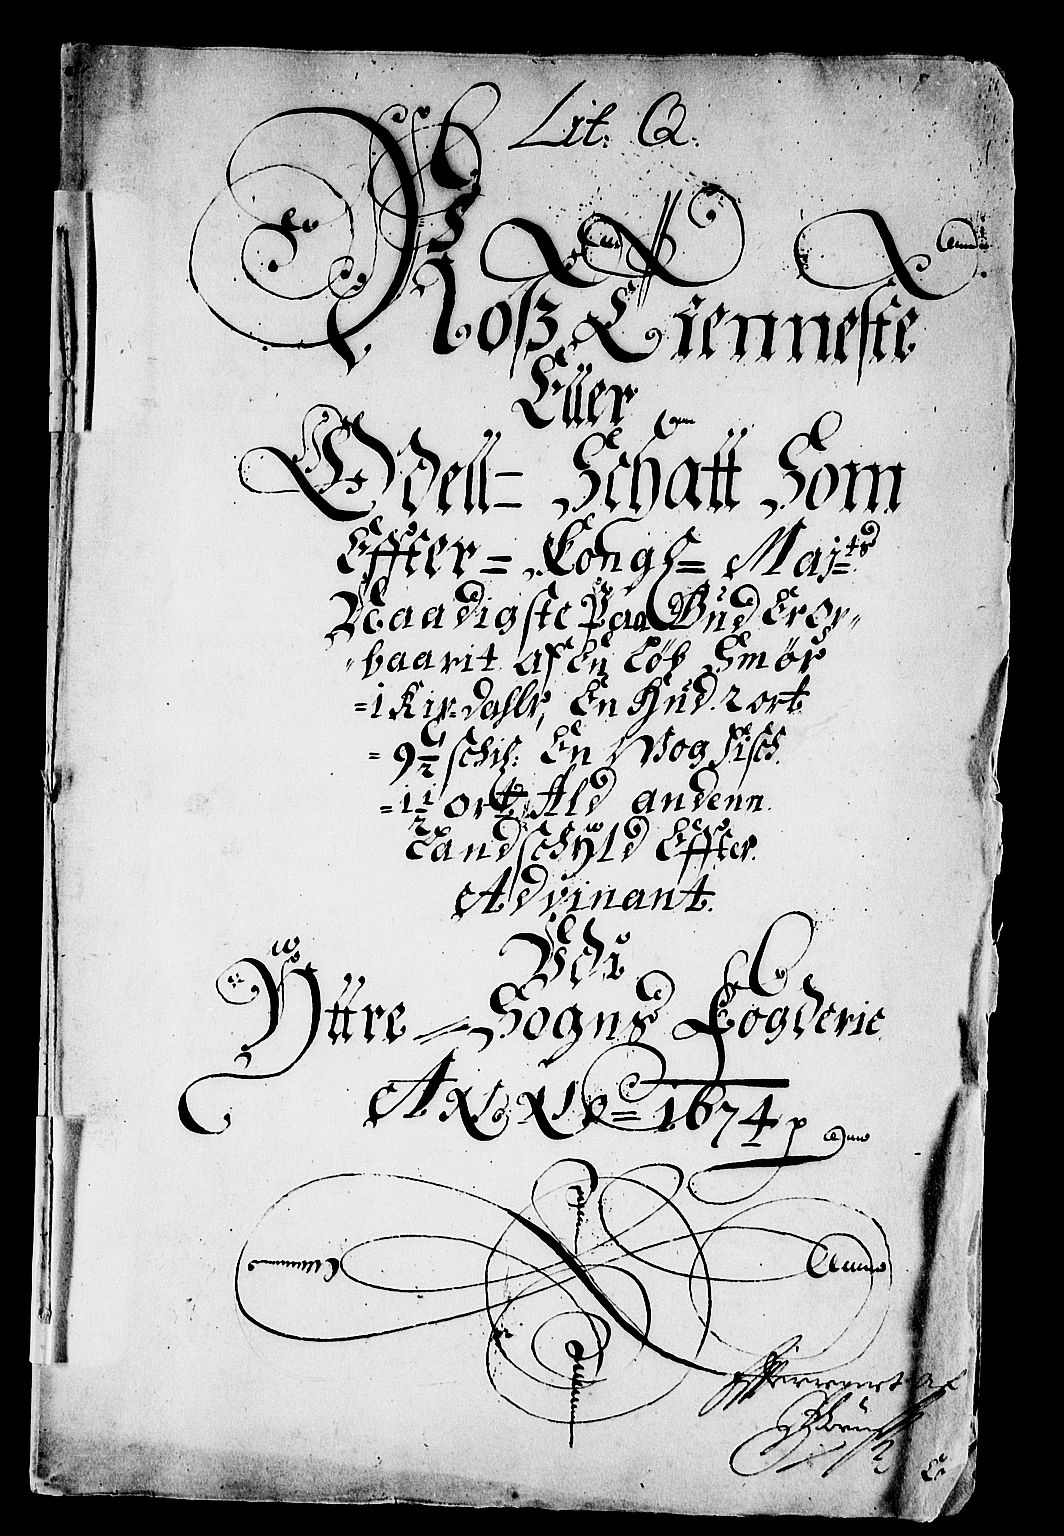 Lit. Q.
Roß Tienneste
Eller
Odell= Schatt Som
Effter= Kongl= Maj=ts
Naadigste Paa Bud Er or,,
,,baarit af En Løb Smør
=1 Kir=dahlr, En Hud 2 ort
=9½ schil: En Wog Fisch
=1½ ort Ald andenn
Landschÿld Effter
Advinant.
Vdi
Ÿttre = Sogns Fogderie
A 1674